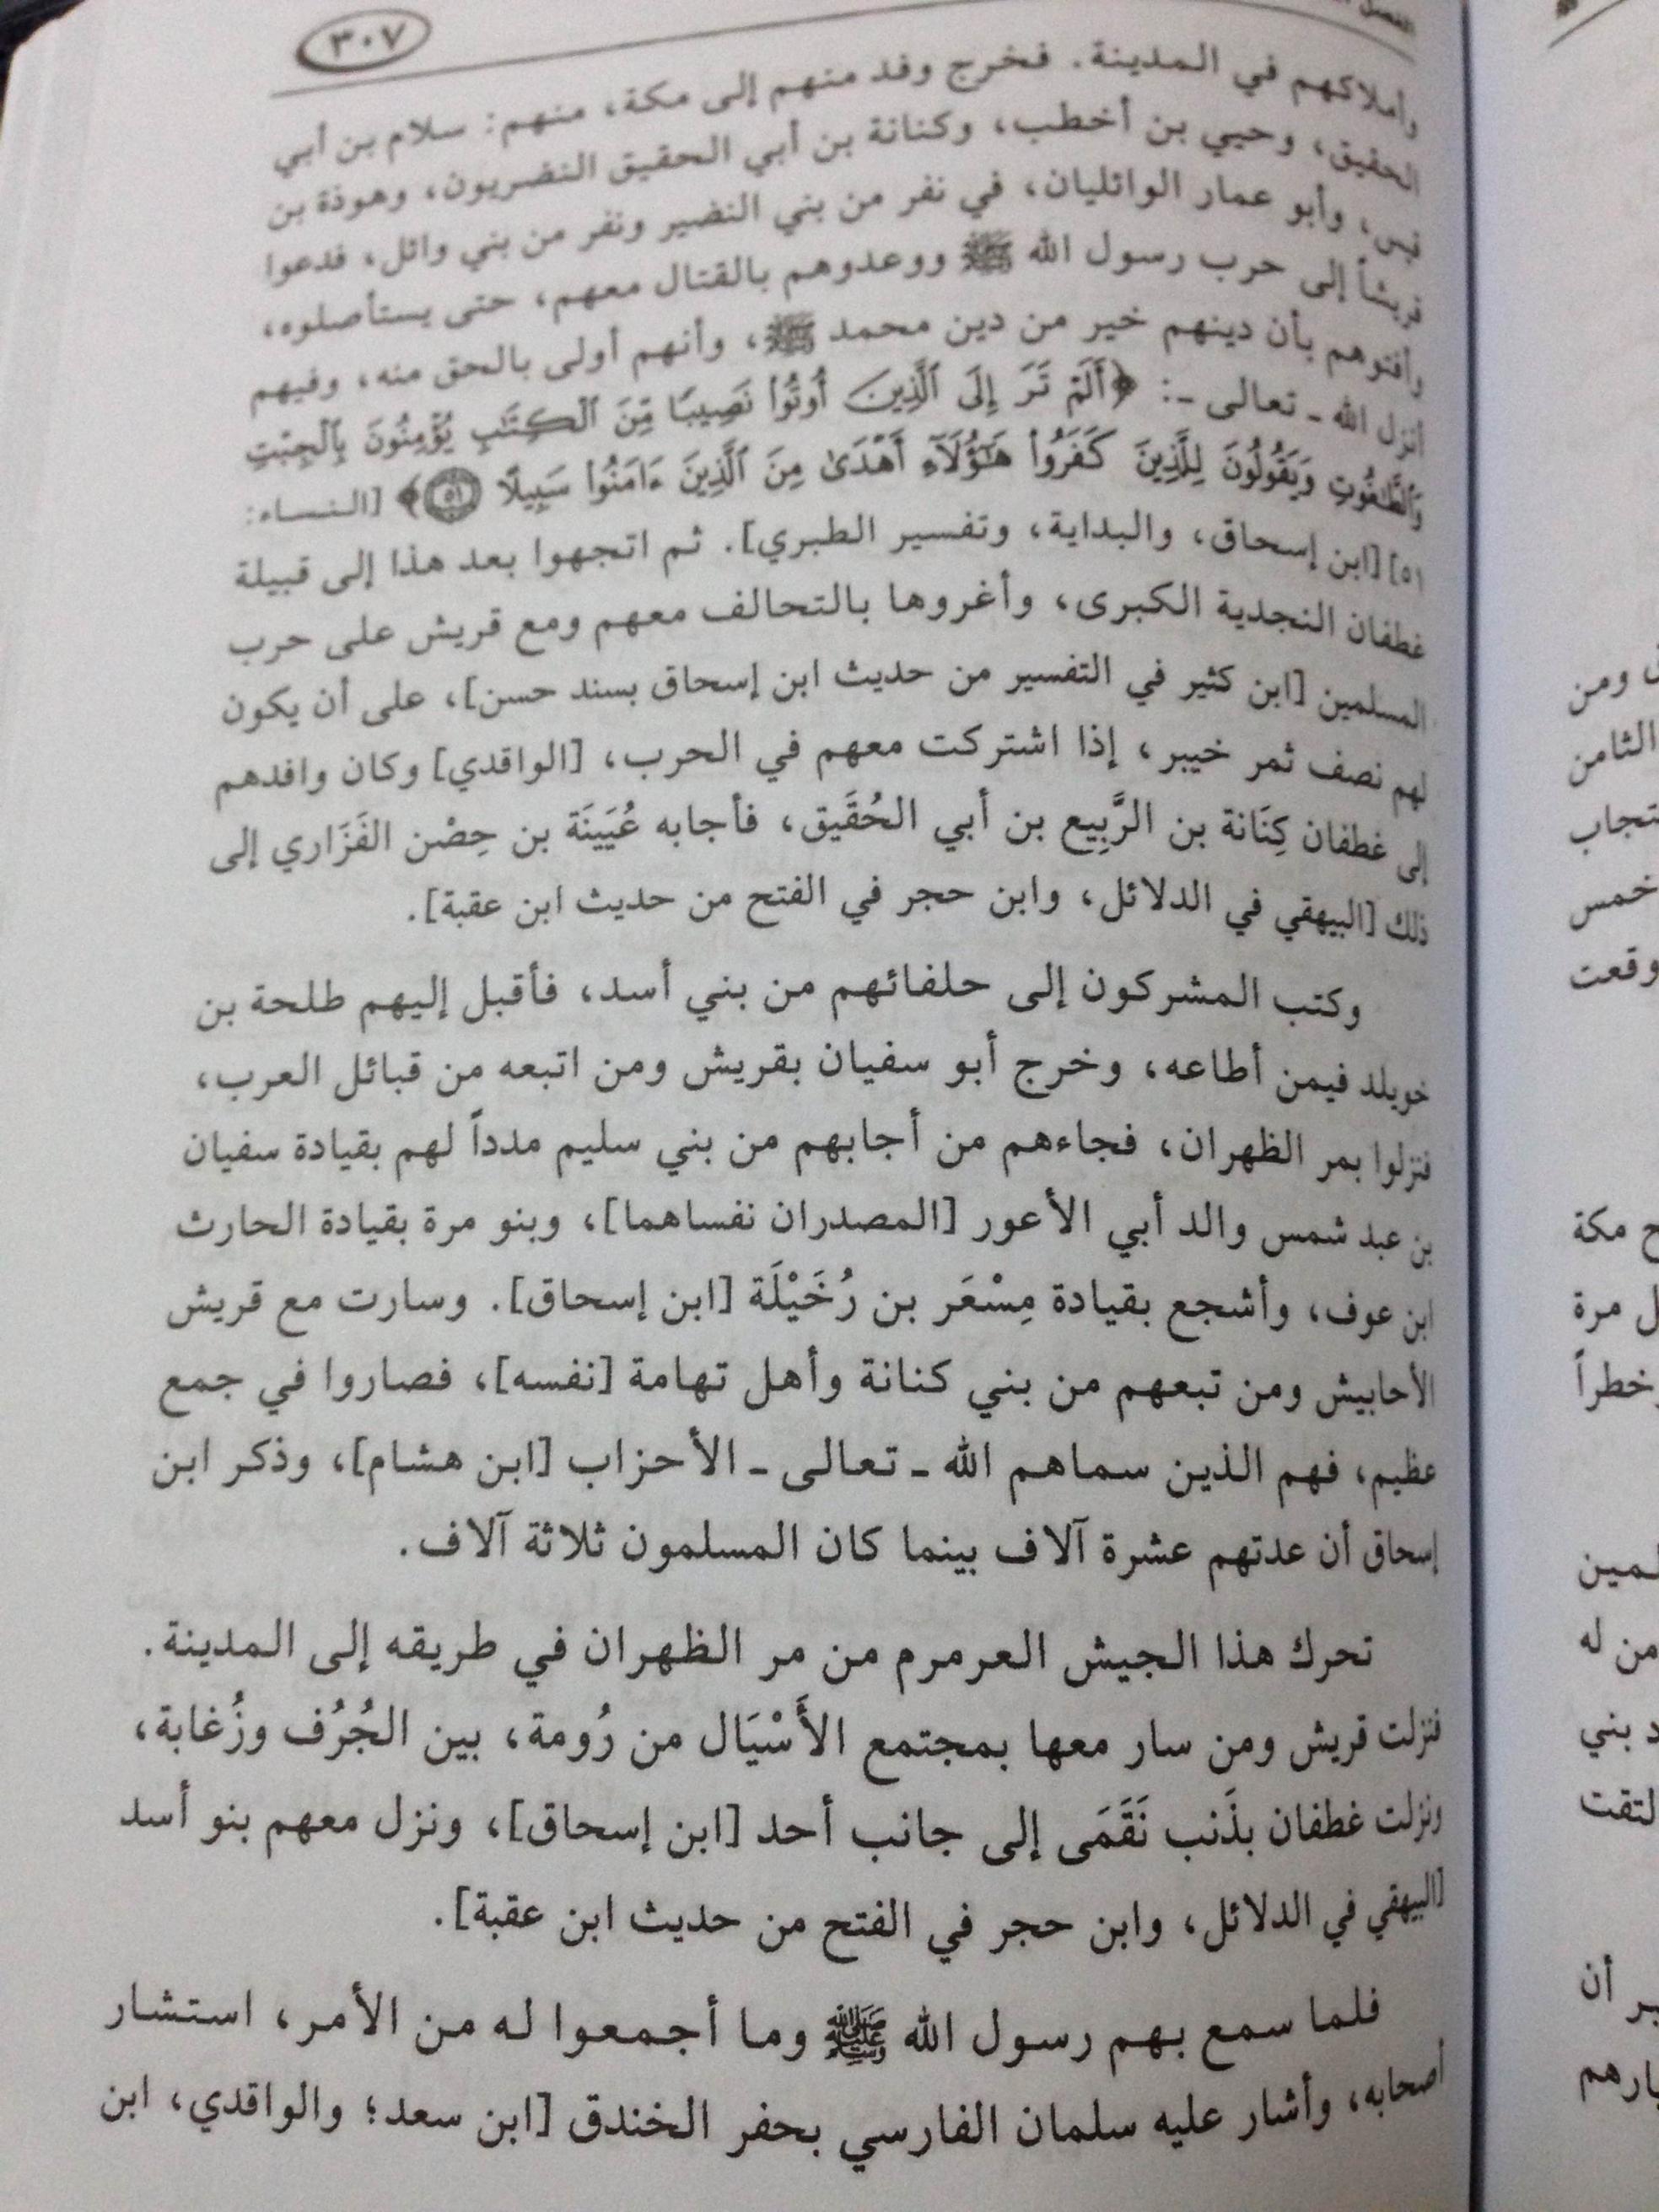 ٣٠٧
وأملاكهم في المدينة. فخرج وفد منهم إلى مكة، منهم: سلام بن أبي
الحقيق، وحيي بن أخطب، وكنانة بن أبي الحقيق النضريون، وهوذة بن
قيس، وأبو عمار الوائليان، في نفر من بني النضير ونفر من بني وائل، فدعوا
قريشاً إلى حرب رسول الله ﷺ ووعدوهم بالقتال معهم، حتى يستأصلوه،
وأفتوهم بأن دينهم خير من دين محمد ﷺ، وأنهم أولى بالحق منه، وفيهم
أنزل الله ـ تعالى ـ: ﴿أَلَمْ تَرَ إِلَى ٱلَّذِينَ أُوتُوا۟ نَصِيبًا مِّنَ ٱلْكِتَٰبِ يُؤْمِنُونَ بِٱلْجِبْتِ
وَٱلطَّٰغُوتِ وَيَقُولُونَ لِلَّذِينَ كَفَرُوا۟ هَٰٓؤُلَآءِ أَهْدَىٰ مِنَ ٱلَّذِينَ ءَامَنُوا۟ سَبِيلًا ٥١﴾ [النساء:
٥١] [ابن إسحاق، والبداية، وتفسير الطبري]. ثم اتجهوا بعد هذا إلى قبيلة
غطفان النجدية الكبرى، وأغروها بالتحالف معهم ومع قريش على حرب
المسلمين [ابن كثير في التفسير من حديث ابن إسحاق بسند حسن]، على أن يكون
لهم نصف ثمر خيبر، إذا اشتركت معهم في الحرب، [الواقدي] وكان وافدهم
إلى غطفان كِنَانة بن الرَّبِيع بن أبي الحُقَيق، فأجابه عُيَينَة بن حِصْن الفَزَاري إلى
ذلك [البيهقي في الدلائل، وابن حجر في الفتح من حديث ابن عقبة].
وكتب المشركون إلى حلفائهم من بني أسد، فأقبل إليهم طلحة بن
خويلد فيمن أطاعه، وخرج أبو سفيان بقريش ومن اتبعه من قبائل العرب،
فنزلوا بمر الظهران، فجاءهم من أجابهم من بني سليم مدداً لهم بقيادة سفيان
بن عبد شمس والد أبي الأعور [المصدران نفساهما]، وبنو مرة بقيادة الحارث
ابن عوف، وأشجع بقيادة مِسْعَر بن رُخَيْلَة [ابن إسحاق]. وسارت مع قريش
الأحابيش ومن تبعهم من بني كنانة وأهل تهامة [نفسه]، فصاروا في جمع
عظيم، فهم الذين سماهم الله ـ تعالى ـ الأحزاب [ابن هشام]، وذكر ابن
إسحاق أن عدتهم عشرة آلاف بينما كان المسلمون ثلاثة آلاف.
تحرك هذا الجيش العرمرم من مر الظهران في طريقه إلى المدينة.
فنزلت قريش ومن سار معها بمجتمع الأَسْيَال من رُومة، بين الجُرُف وزُغابة،
ونزلت غطفان بذَنب نَقَمَى إلى جانب أحد [ابن إسحاق]، ونزل معهم بنو أسد
[البيهقي في الدلائل، وابن حجر في الفتح من حديث ابن عقبة].
فلما سمع بهم رسول الله ﷺ وما أجمعوا له من الأمر، استشار
أصحابه، وأشار عليه سلمان الفارسي بحفر الخندق [ابن سعد؛ والواقدي، ابن
ومن
الثامن
خمس
وقعت
مكة
مرة
من له
بني
أن